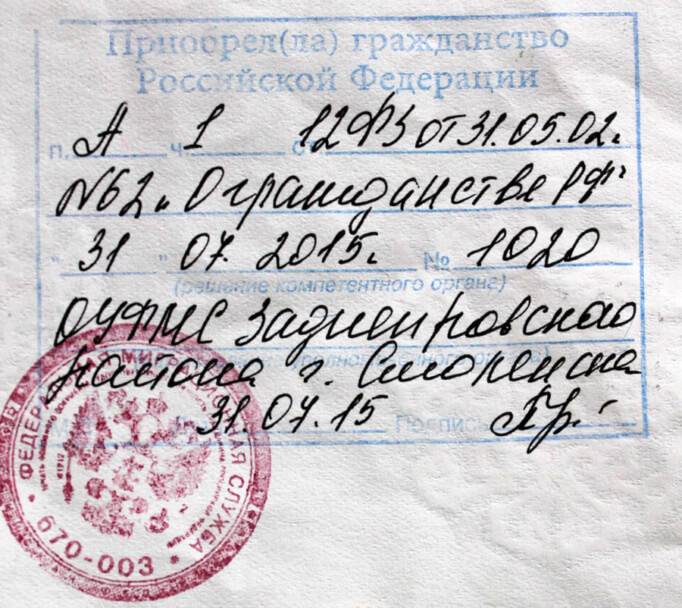 Приобрел(ла) гражданство
Российской Федерации
п. А ч. 1 ст. 12 ФЗ от 31.05.02г.
№62 "О гражданстве РФ"
"31" 07. 2015г. № 1020
(решение компетентного органа)
ОУФМС Заднепровского
района г. Смоленска
31.07.15 Подпись
ФЕДЕРАЛЬНАЯ МИГРАЦИОННАЯ СЛУЖБА
670-003